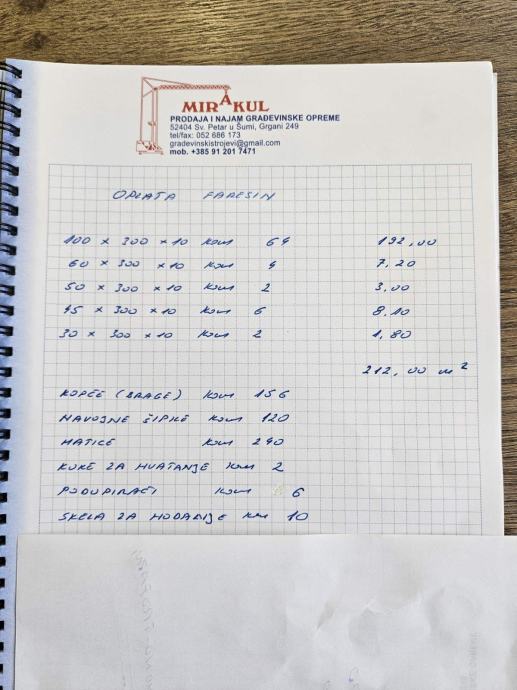 MIRAKUL
PRODAJA I NAJAM GRAĐEVINSKE OPREME
52404 Sv. Petar u Šumi, Grgani 249
tel/fax: 052 686 173
gradevinskistrojevi@gmail.com
mob. +385 91 201 7471
OPLATA FARESIN
100 x 300 x 10 kom 64 192,00
60 x 300 x 10 kom 4 7,20
50 x 300 x 10 kom 2 3,00
45 x 300 x 10 kom 6 8.10
30 x 300 x 10 kom 2 1,80
212,00 m²
KOPČE (BRAGE) kom 156
NAVOJNE ŠIPKE kom 120
MATICE kom 240
KUKE ZA HVATANJE kom 2
PODUPIRAČI kom 6
SKELA ZA HODANJE kom 10